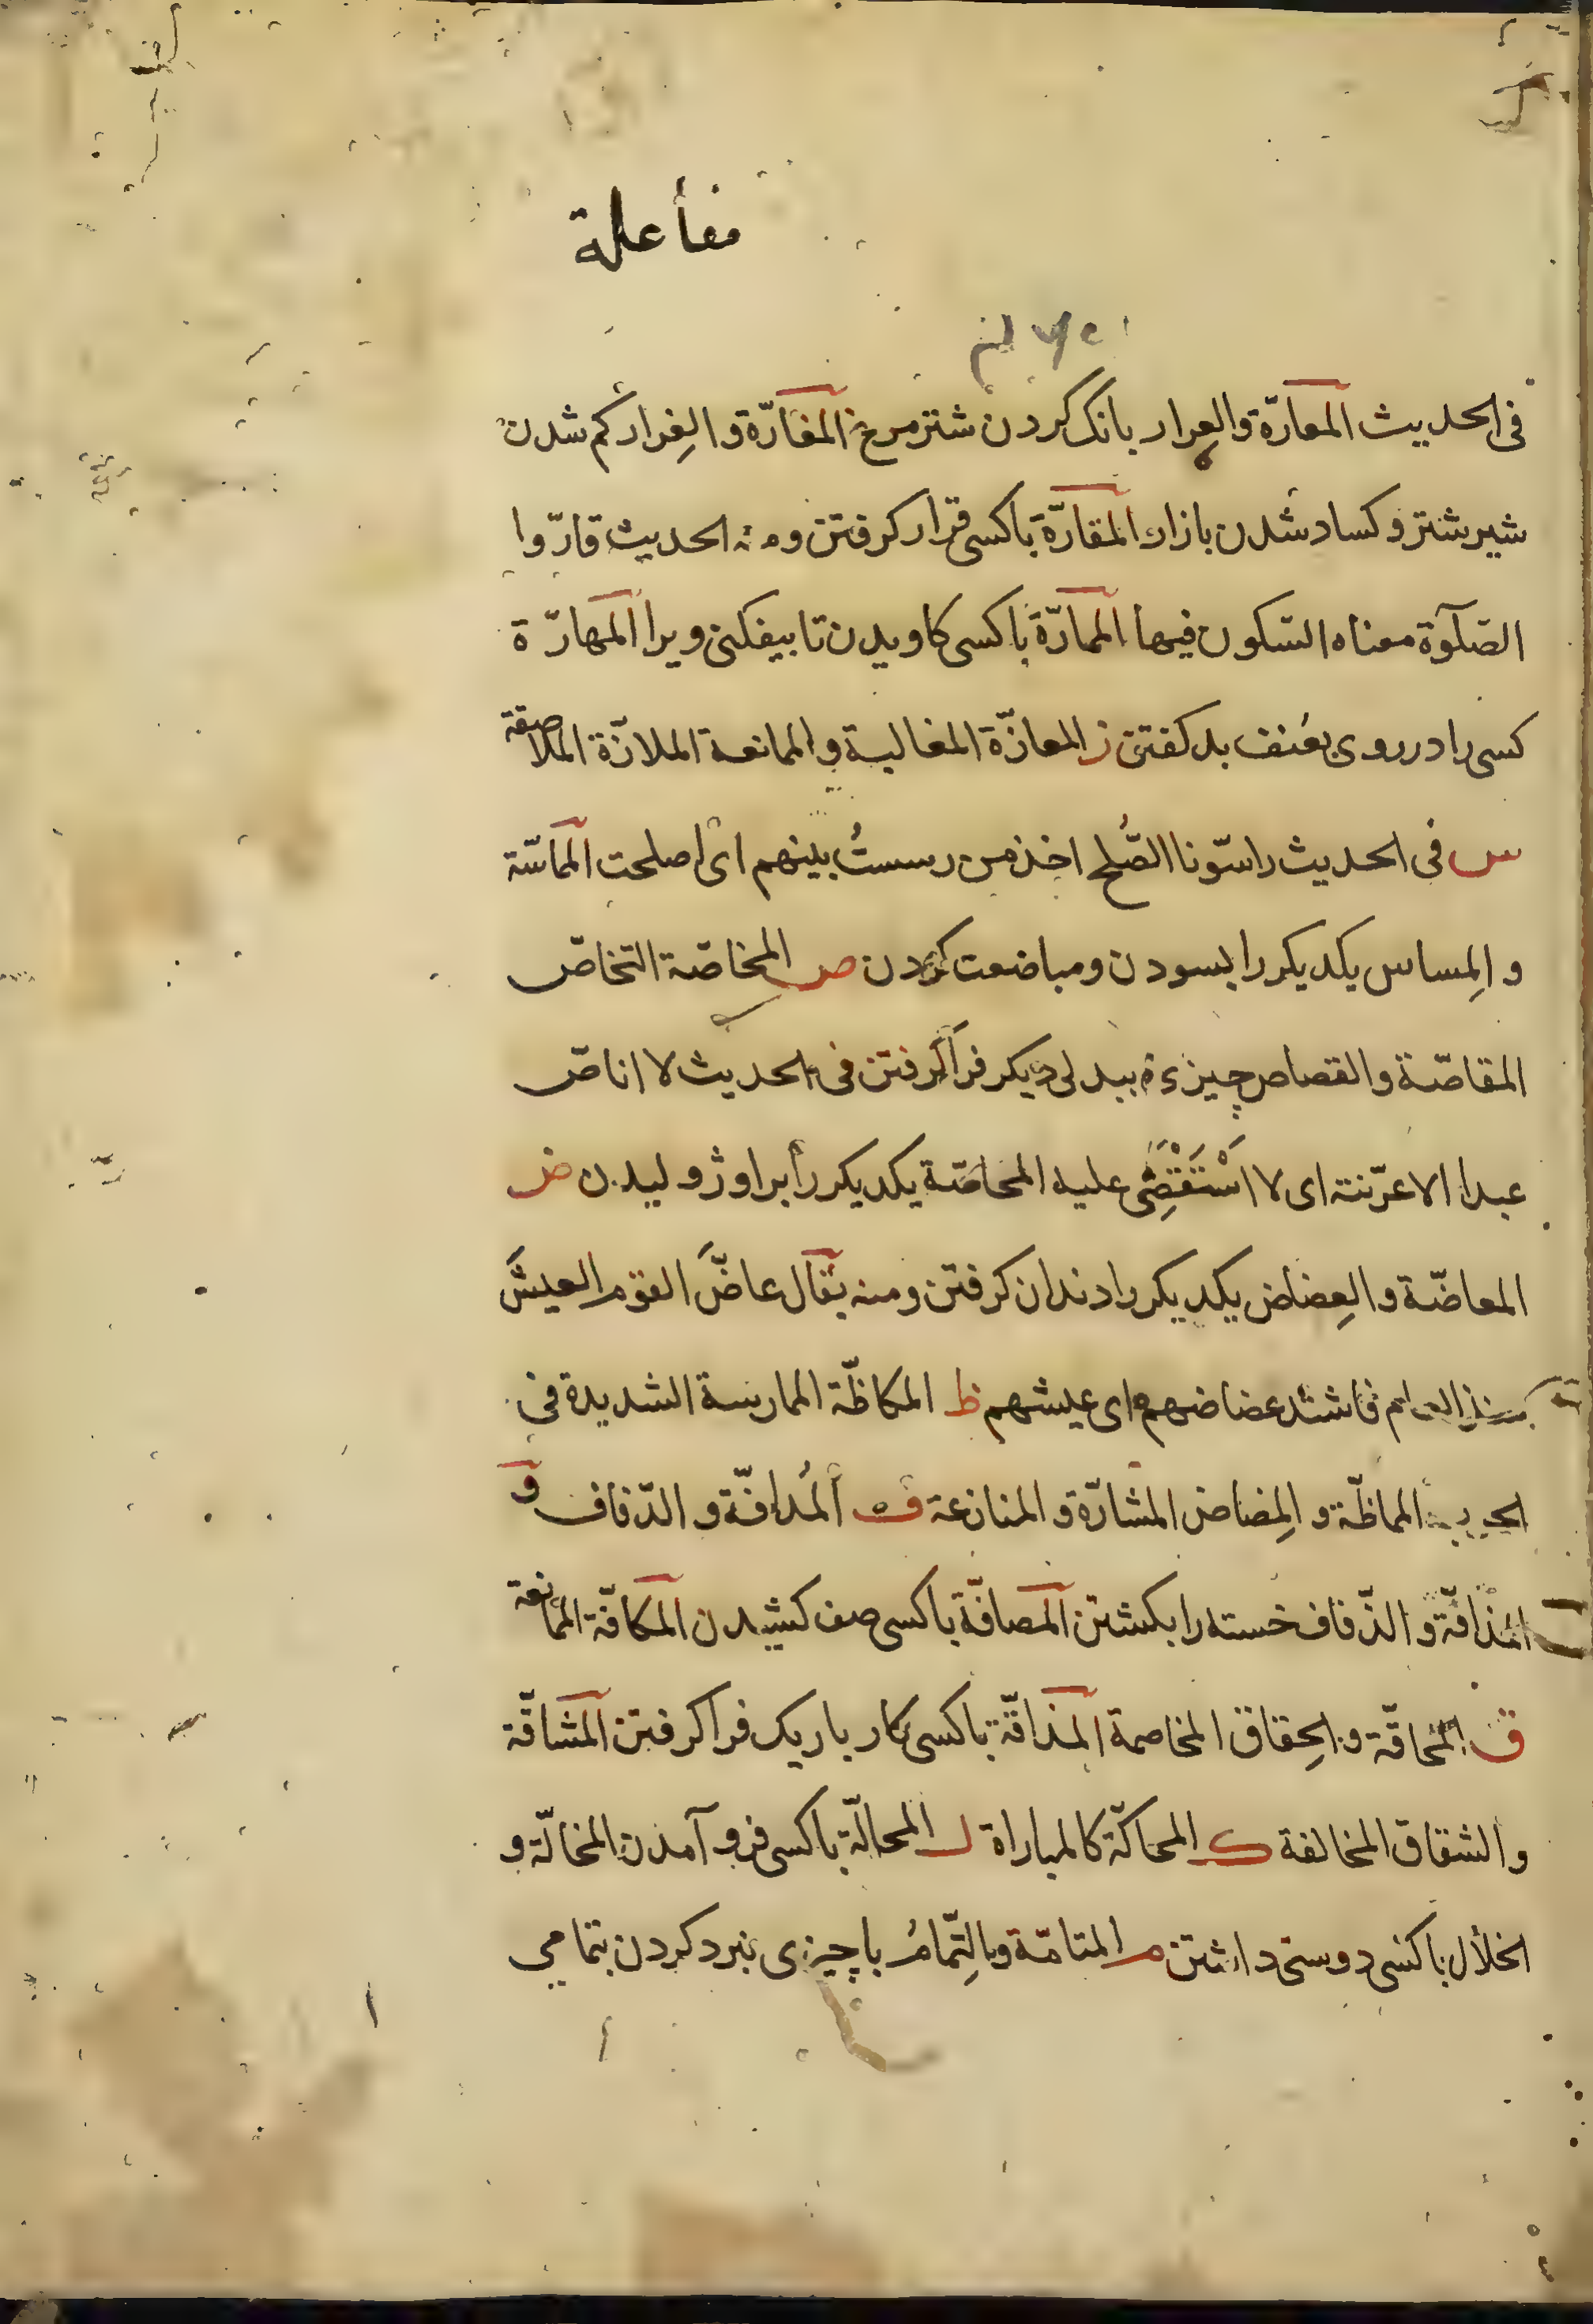 مفاعلة
فی الحدیث المعارّة والعِرار بانک کردن شترمرغ المغارّة والغِرار کم شدن
شیر شتر و کساد شدن بازار المقارّة با کسی قرار کرفتن ومنه الحدیث قارّوا
الصّلوٰة معناه السّکون فیها الممارّة با کسی کاویدن تا بیفکنی ویرا المهارّة
کسی را در روی بعُنف بد کفتن ز المعازّة المغالبة والممانعة الملازّة الملاصقة
س فی الحدیث راسّونا الصُّلح اخذ من رسستُ بینهم ای اصلحت المماسّة
والمِساس یکدیکر را بسودن ومباضعت کردن ص المخاصّة التخاصّ
المقاصّة والقصاص چیزی ببدل دیکر فرا کرفتن فی الحدیث لا اناصّ
عبدا الا عذّبته ای لا اَسْتَقْصِی علیه المحاصّة یکدیکر را براوژولیدن ض
المعاضّة والعِضاض یکدیکر را دندان کرفتن ومنه یقال عاضَّ القوم العیشَ
منذ العام فاشتد عضاضهم ای عیشهم ظ المکاظّة الممارسة الشدیدة فی
الحرب المماظّة والمِضاض المشارّة والمنازعة ف المُدافّة والدّفاف و
المُذافّة والذّفاف خسته را بکشتن المصافّة با کسی صف کشیدن المکافّة الممانعة
ق المُحاقّة والحِقاق المخاصمة المُداقّة با کسی کار باریک فرا کرفتن المشاقّة
والشقاق المخالفة ک المحاکّة کالمباراة ل المحالّة با کسی فرو آمدن المخالّة و
الخلال با کسی دوستی داشتن م المتامّة والتِّمامُ با چیزی نبرد کردن بتمامی